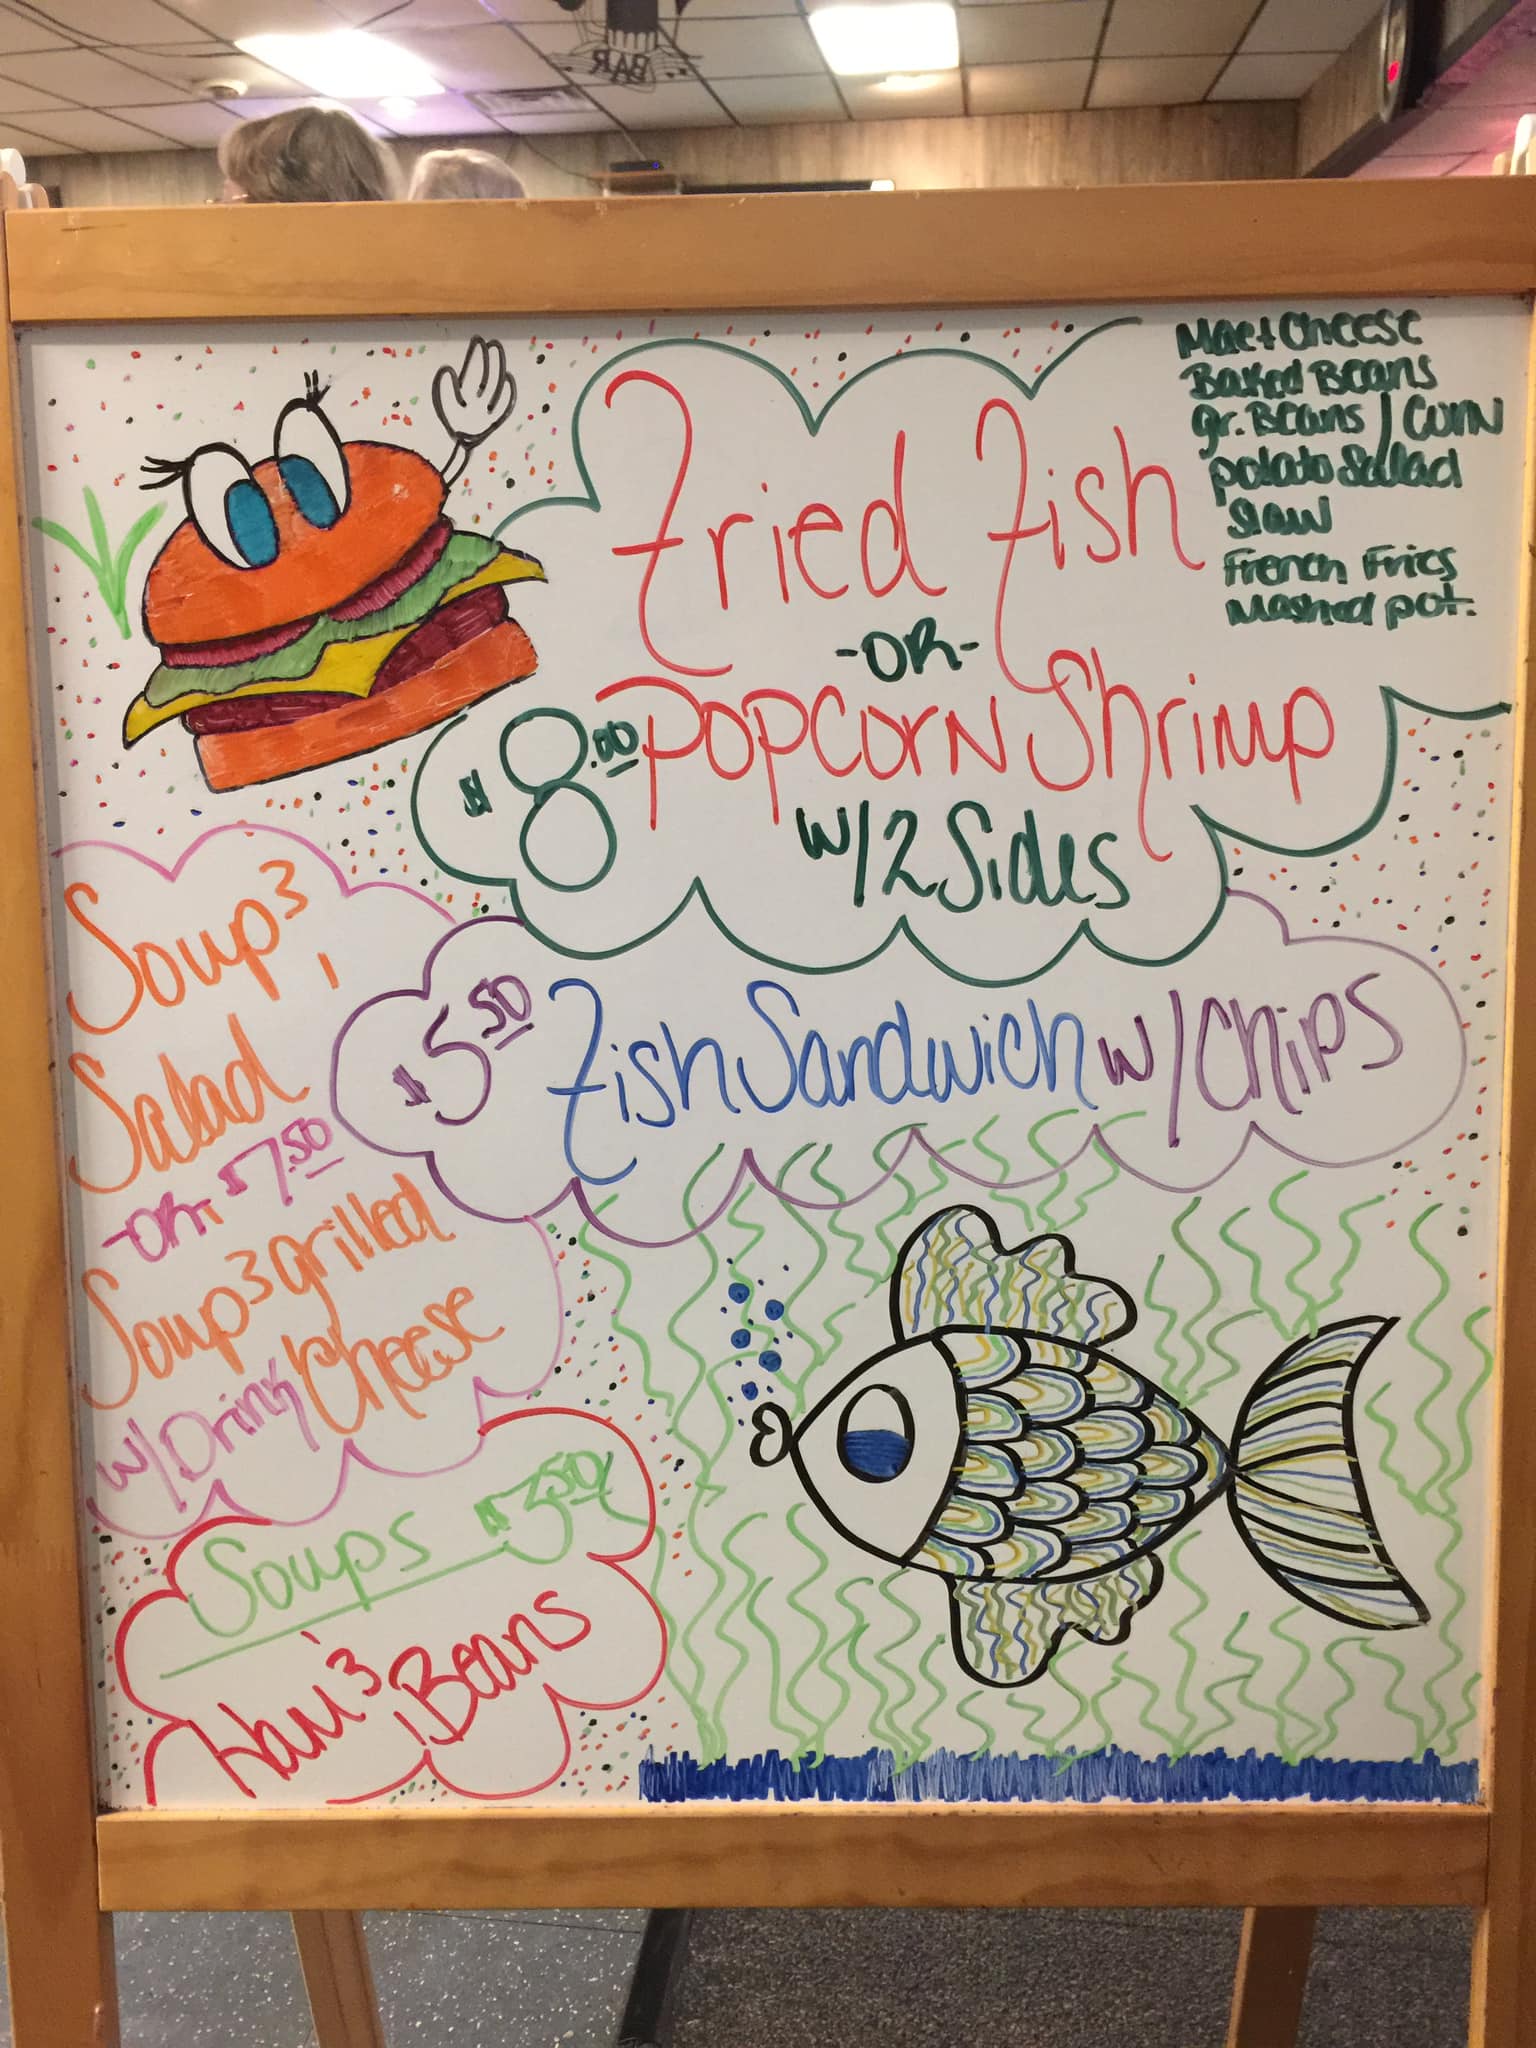 BAR
Mac + Cheese
Baked Beans
gr. Beans / Corn
potato Salad
Slaw
French Fries
Mashed pot.
Fried Fish
-OR-
$8.00 Popcorn Shrimp
w/2 Sides
$5.50 Fish Sandwich w/Chips
Soup 3
Salad
-OR- $7.50
Soup 3 grilled
Cheese
w/Drink
Soups $3.50
Ham 3 Beans